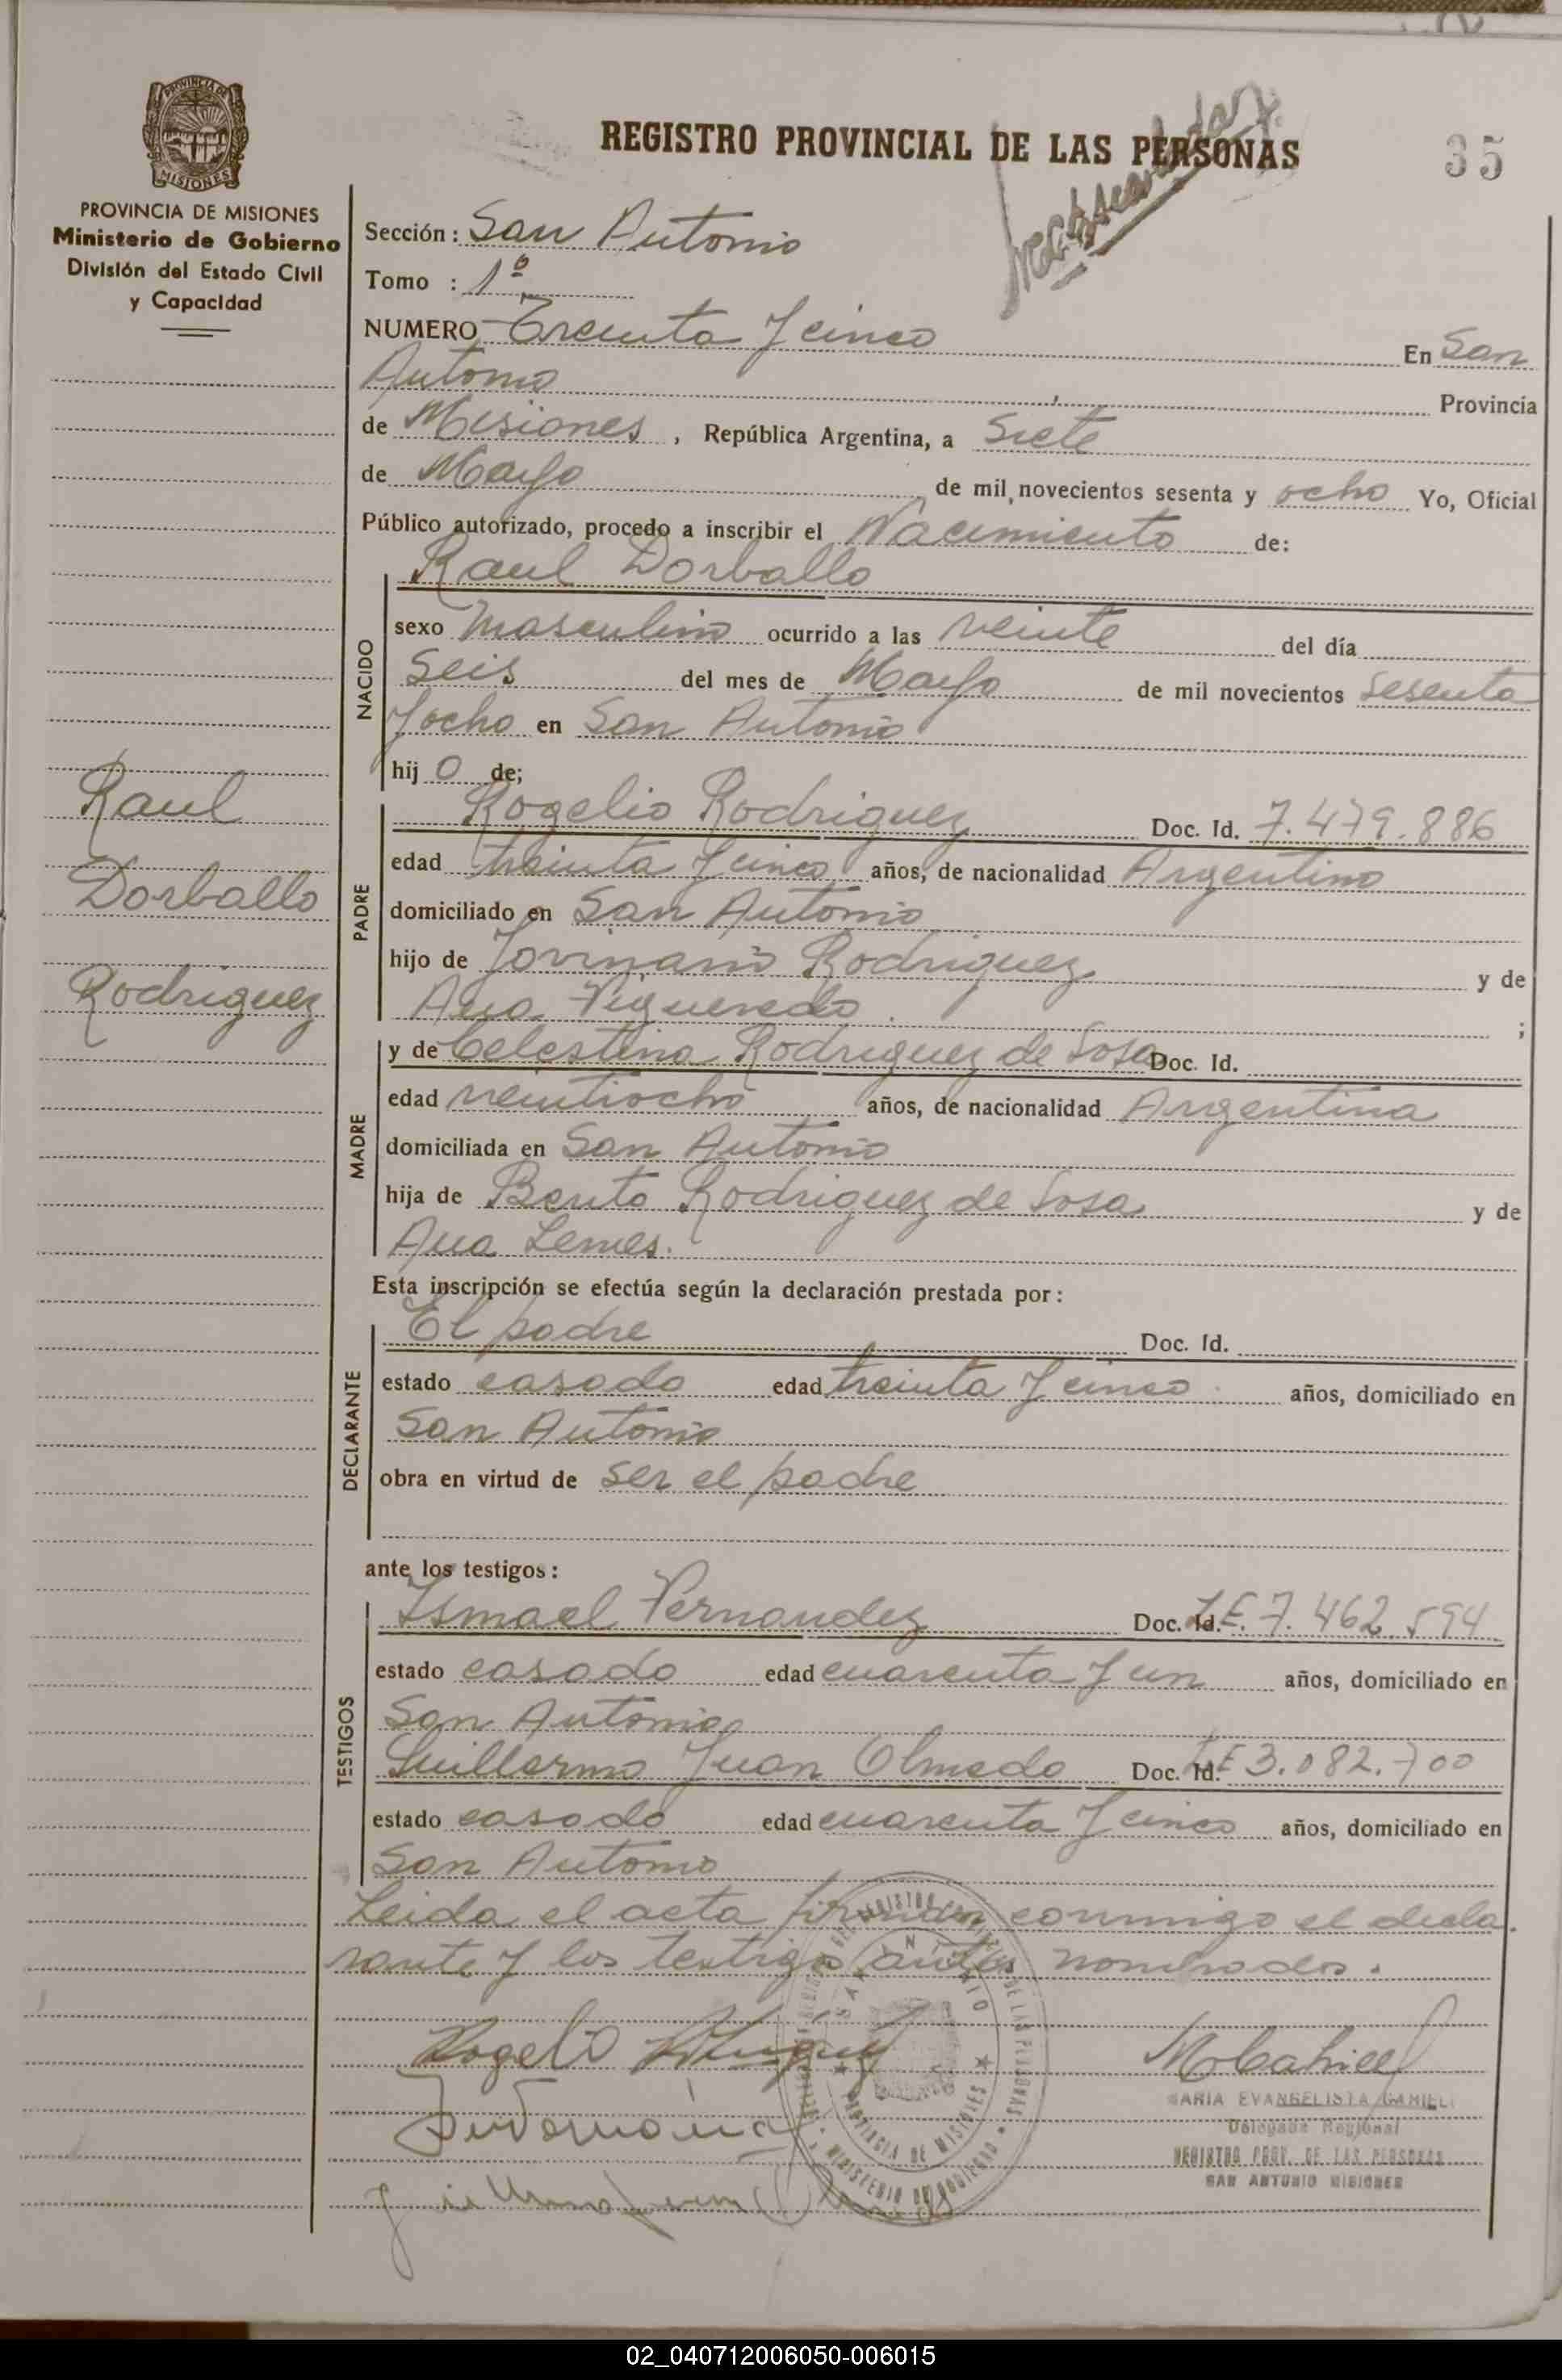 REGISTRO PROVINCIAL DE LAS PERSONAS
35
PROVINCIA DE MISIONES
Ministerio de Gobierno
División del Estado Civil
y Capacidad
Sección: San Antonio
Tomo : 1º
NUMERO Treinta y cinco En San
Antonio Provincia
de Misiones, República Argentina, a Siete
de Mayo de mil novecientos sesenta y ocho Yo, Oficial
Público autorizado, procedo a inscribir el Nacimiento de:
Raul Dorballo
NACIDO
sexo masculino ocurrido a las veinte del día
Seis del mes de Mayo de mil novecientos sesenta
y ocho en San Antonio
hij o de;
Raul
Dorballo
Rodriguez
PADRE
Rogelio Rodriguez Doc. Id. 7.479.886
edad treinta y cinco años, de nacionalidad Argentino
domiciliado en San Antonio
hijo de Rodriguez y de
Ana Figueredo ;
MADRE
y de Celestina Rodriguez de Sosa Doc. Id.
edad veintiocho años, de nacionalidad Argentina
domiciliada en San Antonio
hija de Bento Rodriguez de Sosa y de
Ana Lemes.
Esta inscripción se efectúa según la declaración prestada por:
DECLARANTE
El padre Doc. Id.
estado casado edad treinta y cinco años, domiciliado en
San Antonio
obra en virtud de ser el padre
ante los testigos:
TESTIGOS
Ismael Fernandez Doc. Id. L.E. 7.462.594
estado casado edad cuarenta y un años, domiciliado en
San Antonio
Guillermo Juan Olmedo Doc. Id. LE 3.082.700
estado casado edad cuarenta y cinco años, domiciliado en
San Antonio
Leida el acta firman conmigo el decla-
rante y los testigos antes nombrados.
Rogelio
MARIA EVANGELISTA
Delegada Regional
REGISTRO PROV. DE LAS PERSONAS
SAN ANTONIO MISIONES
SAN ANTONIO
PROVINCIA DE MISIONES
MINISTERIO DE GOBIERNO
02_040712006050-006015